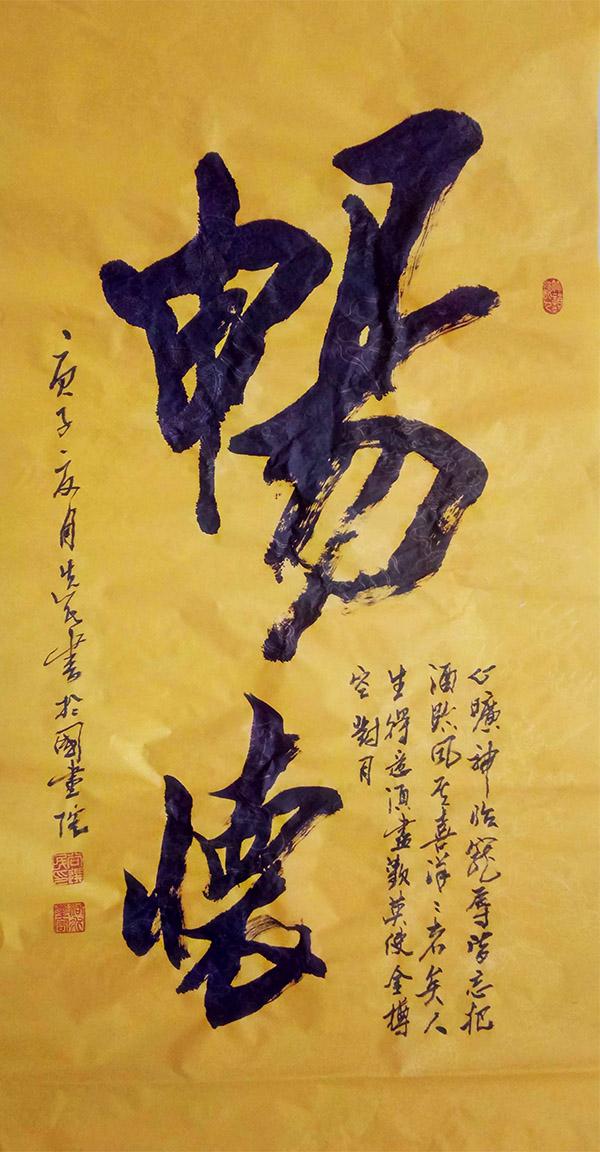 暢
懷
心曠神怡寵辱皆忘把
酒臨風其喜洋〻者矣人
生得意須盡歡莫使金樽
空對月
庚子亥月先 書於國畫院